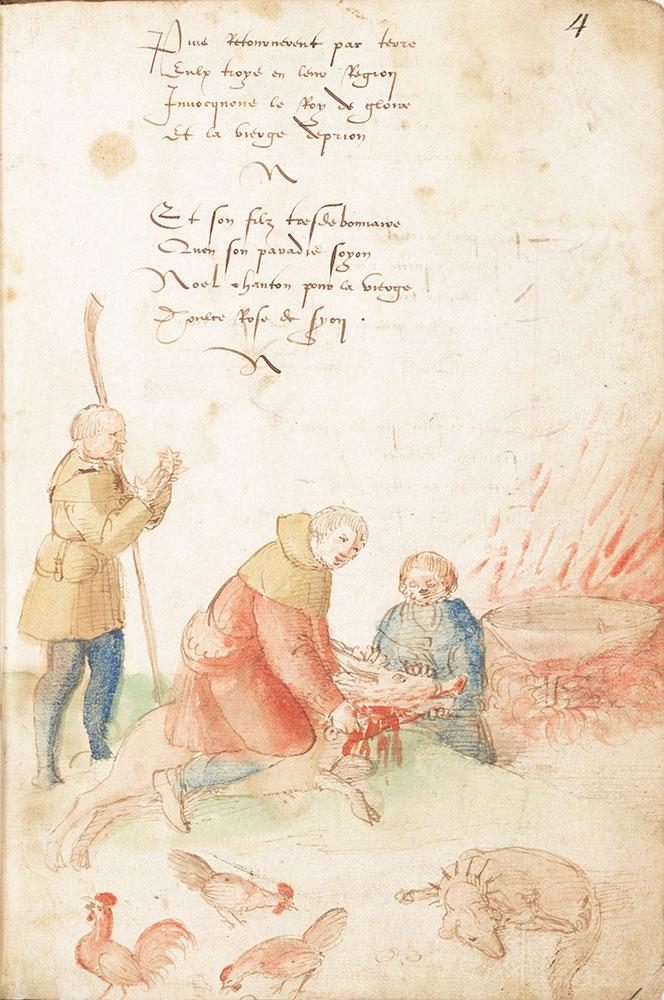 4
Puis Retournerent par terre
Eulx troys en leur Region
Invocquons le Roy de gloire
Et la vierge de prion
N
Et son filz tresdebonnaire
Quen son paradis soyon
Noel chanton pour la vierge
Doulce Rose de Syon .
N